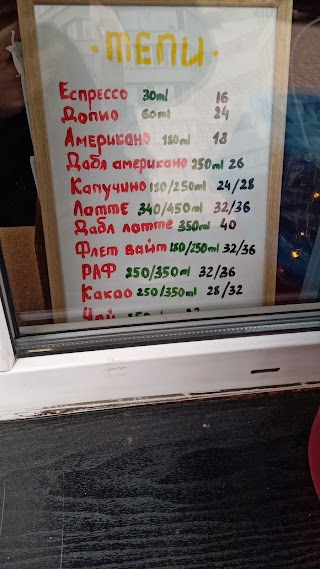 ·МЕПИ·
Еспрессо 30ml 16
Допио 60ml 24
Американо 180ml 18
Дабл американо 250ml 26
Капучино 180/250ml 24/28
Латте 340/450ml 32/36
Дабл латте 350ml 40
Флет вайт 180/250ml 32/36
РАФ 250/350ml 32/36
Какао 250/350ml 28/32
Чай